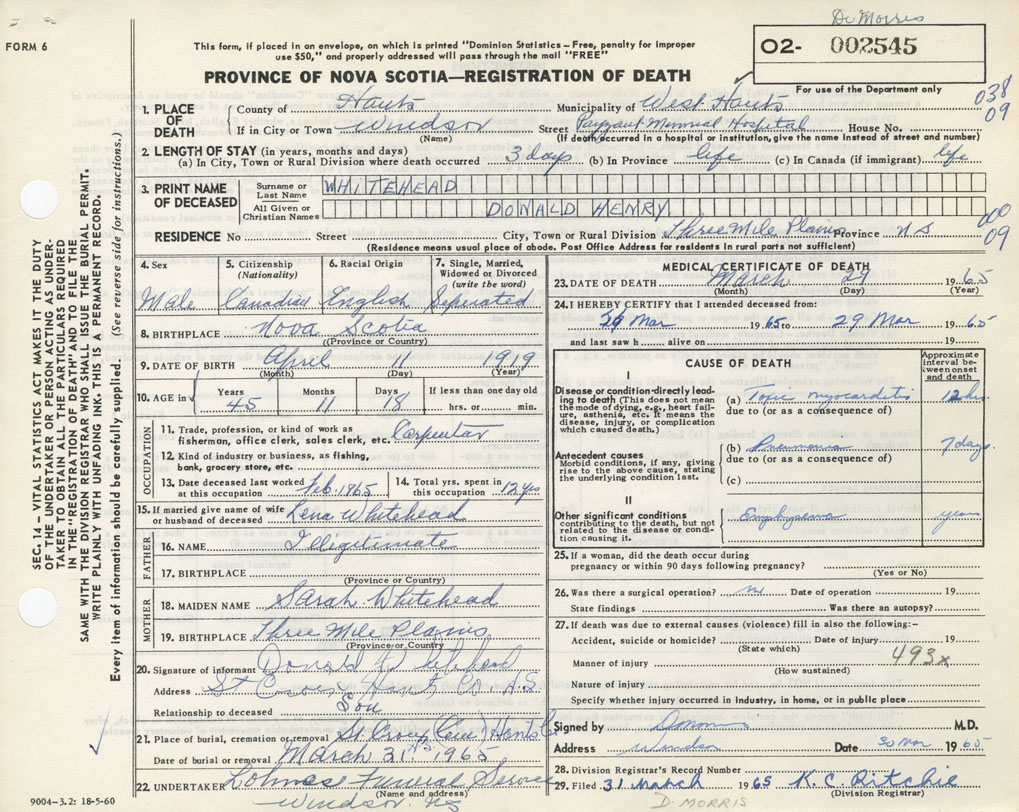 Dr Morris
FORM 6
This form, if placed in an envelope, on which is printed "Dominion Statistics – Free, penalty for improper
use $50," and properly addressed will pass through the mail "FREE"
02- 002545
For use of the Department only
PROVINCE OF NOVA SCOTIA—REGISTRATION OF DEATH
038
09
1. PLACE OF DEATH
County of Hants Municipality of West Hants
If in City or Town Windsor Street Payzant Memorial Hospital House No.
(Name) (If death occurred in a hospital or institution, give the name instead of street and number)
2. LENGTH OF STAY (in years, months and days)
(a) In City, Town or Rural Division where death occurred 3 days (b) In Province life (c) In Canada (if immigrant) life
3. PRINT NAME OF DECEASED
Surname or Last Name WHITEHEAD
All Given or Christian Names DONALD HENRY
000
09
RESIDENCE No Street City, Town or Rural Division Three Mile Plains Province N S
(Residence means usual place of abode. Post Office Address for residents in rural parts not sufficient)
SEC. 14 – VITAL STATISTICS ACT MAKES IT THE DUTY
OF THE UNDERTAKER OR PERSON ACTING AS UNDER-
TAKER TO OBTAIN ALL THE PARTICULARS REQUIRED
IN THE "REGISTRATION OF DEATH" AND TO FILE THE
SAME WITH THE DIVISION REGISTRAR WHO SHALL ISSUE THE BURIAL PERMIT.
WRITE PLAINLY WITH UNFADING INK. THIS IS A PERMANENT RECORD.
Every item of information should be carefully supplied. (See reverse side for instructions.)
4. Sex Male
5. Citizenship (Nationality) Canadian
6. Racial Origin English
7. Single, Married, Widowed or Divorced (write the word) Seperated
8. BIRTHPLACE Nova Scotia
(Province or Country)
9. DATE OF BIRTH April 11 1919
(Month) (Day) (Year)
10. AGE in Years 45 Months 11 Days 18 If less than one day old
hrs. or min.
OCCUPATION
11. Trade, profession, or kind of work as
fisherman, office clerk, sales clerk, etc. Carpenter
12. Kind of industry or business, as fishing,
bank, grocery store, etc.
13. Date deceased last worked
at this occupation Feb. 1965
14. Total yrs. spent in
this occupation 12 yrs
15. If married give name of wife
or husband of deceased Lena Whitehead
FATHER
16. NAME Illegitimate
17. BIRTHPLACE
(Province or Country)
MOTHER
18. MAIDEN NAME Sarah Whitehead
19. BIRTHPLACE Three Mile Plains
(Province or Country)
20. Signature of informant Donald Whitehead
Address St Croix Hants Co. N.S
Relationship to deceased Son
21. Place of burial, cremation or removal St. Croix (Cem) Hants Co
N.S
Date of burial or removal March 31 1965
22. UNDERTAKER Funeral Service
(Name and address)
Windsor NS
9004-3.2: 18-5-60
MEDICAL CERTIFICATE OF DEATH
23. DATE OF DEATH March 29 1965
(Month) (Day) (Year)
24. I HEREBY CERTIFY that I attended deceased from:
Mar 1965 to 29 Mar 1965
and last saw h alive on 19
CAUSE OF DEATH
Approximate interval between onset and death
I
Disease or condition directly leading to death (This does not mean the mode of dying, e.g., heart failure, asthenia, etc. It means the disease, injury, or complication which caused death.)
(a) Toxic myocarditis 12 hrs.
due to (or as a consequence of)
Antecedent causes
Morbid conditions, if any, giving rise to the above cause, stating the underlying condition last.
(b) Pneumonia 7 days.
due to (or as a consequence of)
(c)
II
Other significant conditions
contributing to the death, but not related to the disease or condition causing it.
Emphysema years
25. If a woman, did the death occur during
pregnancy or within 90 days following pregnancy?
(Yes or No)
26. Was there a surgical operation? no Date of operation 19
State findings Was there an autopsy?
27. If death was due to external causes (violence) fill in also the following:-
Accident, suicide or homicide? Date of injury 19
(State which)
493x
Manner of injury
(How sustained)
Nature of injury
Specify whether injury occurred in Industry, in home, or in public place
Signed by D Morris M.D.
Address Windsor Date 30 Mar 1965
28. Division Registrar's Record Number
29. Filed 31 March 1965 K. C. Ritchie
(Division Registrar)
D. MORRIS